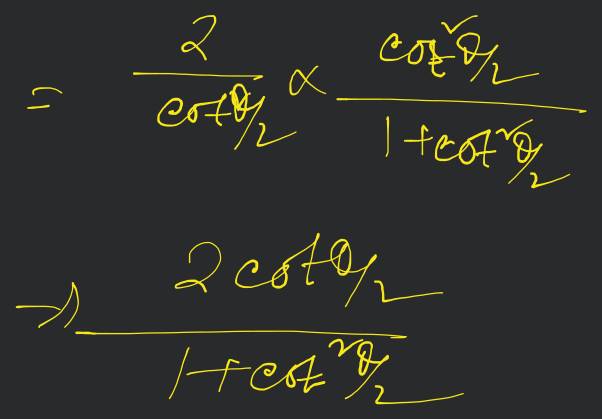 = 2 / cot θ/2 × cot² θ/2 / 1+cot² θ/2
⇒ 2 cot θ/2 / 1+cot² θ/2